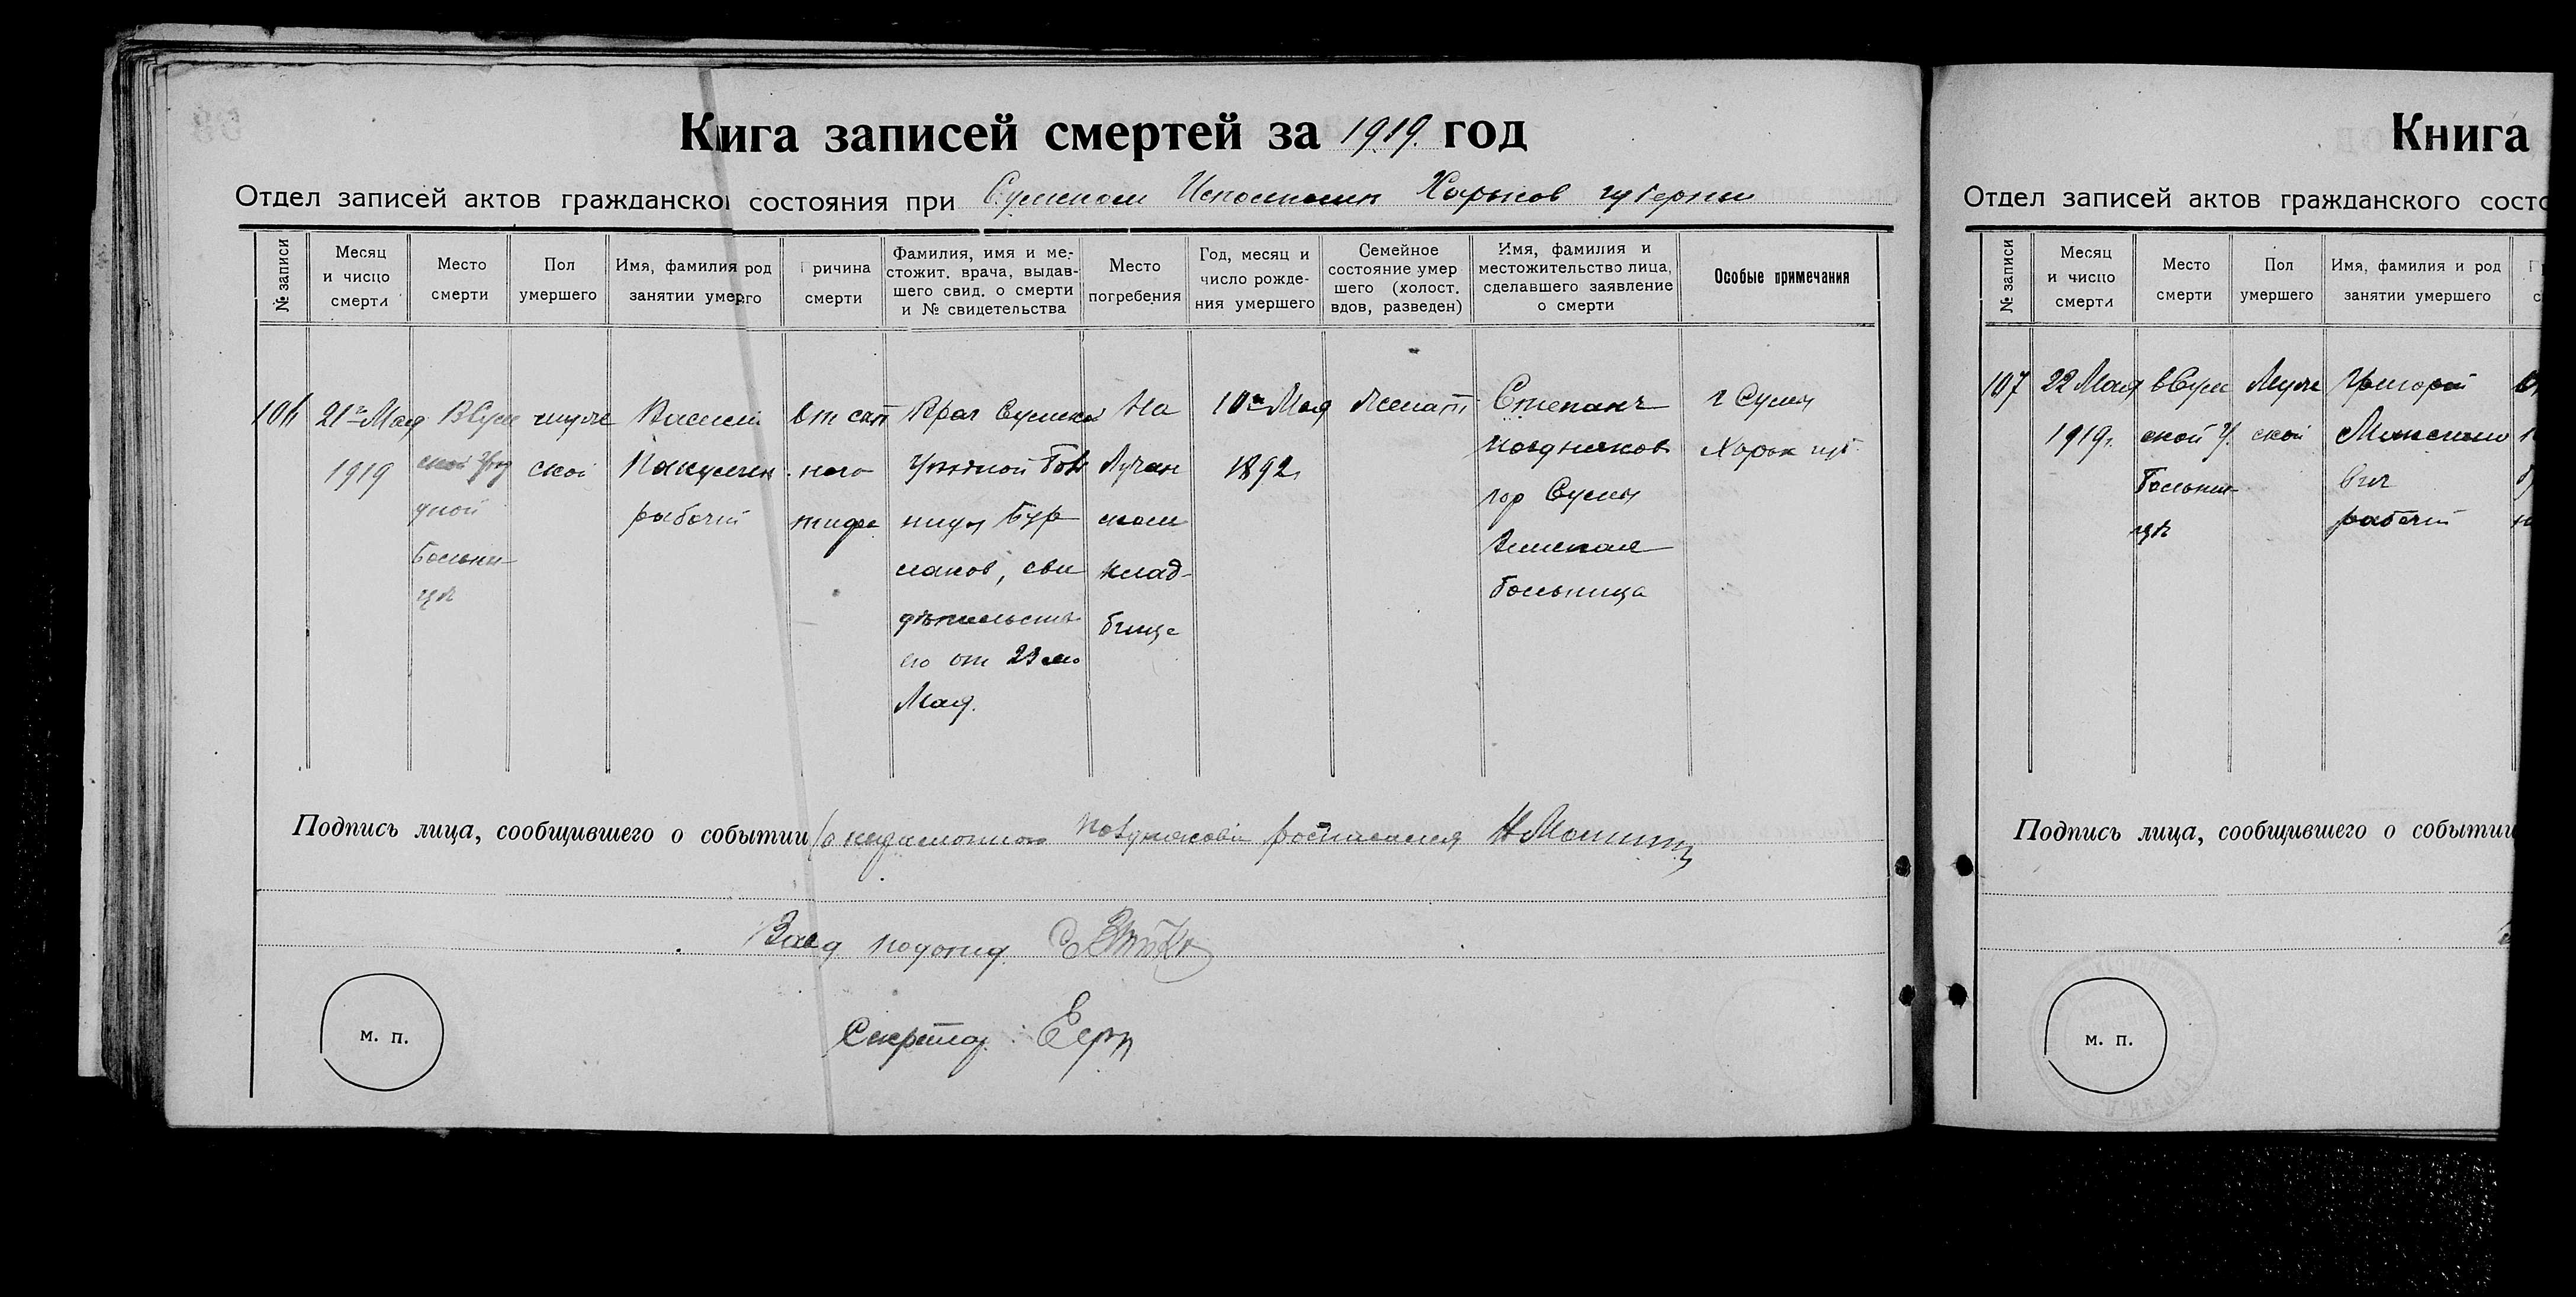 Книга записей смертей за 1919. год
Отдел записей актов гражданского состояния при Сумском Исполком Харьков губернии
№ записи
Месяц и число смерти
Место смерти
Пол умершего
Имя, фамилия род занятии умерго
Причина смерти
Фамилия, имя и местожит. врача, выдавшего свид. о смерти и № свидетельства
Место погребения
Год, месяц и число рождения умершего
Семейное состояние умершего (холост. вдов, разведен)
Имя, фамилия и местожительство лица, сделавшего заявление о смерти
Особые примечания
106
21го Мая
1919
В Сум
ской Уез
дной
больни
цѣ
муж
ской
Василий
рабочий
от сып
ного
тифа
Врач Сумской
Уѣздной Бол
ницы Бур
лаков, сви
дѣтельств
о от 23 го
Мая.
На
Лучан
ском
клад-
бище
10го Мая
1892
Женат
Степан
Поздняков
гор Сумы
Земская
больница
г Сумы
Харьк губ
Подпись лица, сообщившего о событии
Позднякова росписался
Завед подотд
Секретар:
м. п.
Книга
Отдел записей актов гражданского состо
№ записи
Месяц и число смерти
Место смерти
Пол умершего
Имя, фамилия и род занятии умершего
107
22 Мая
1919г.
в Сум
ской У.
Больни-
цѣ
Муж
ской
Григорий
рабочий
Подпись лица, сообщившего о событии
м. п.